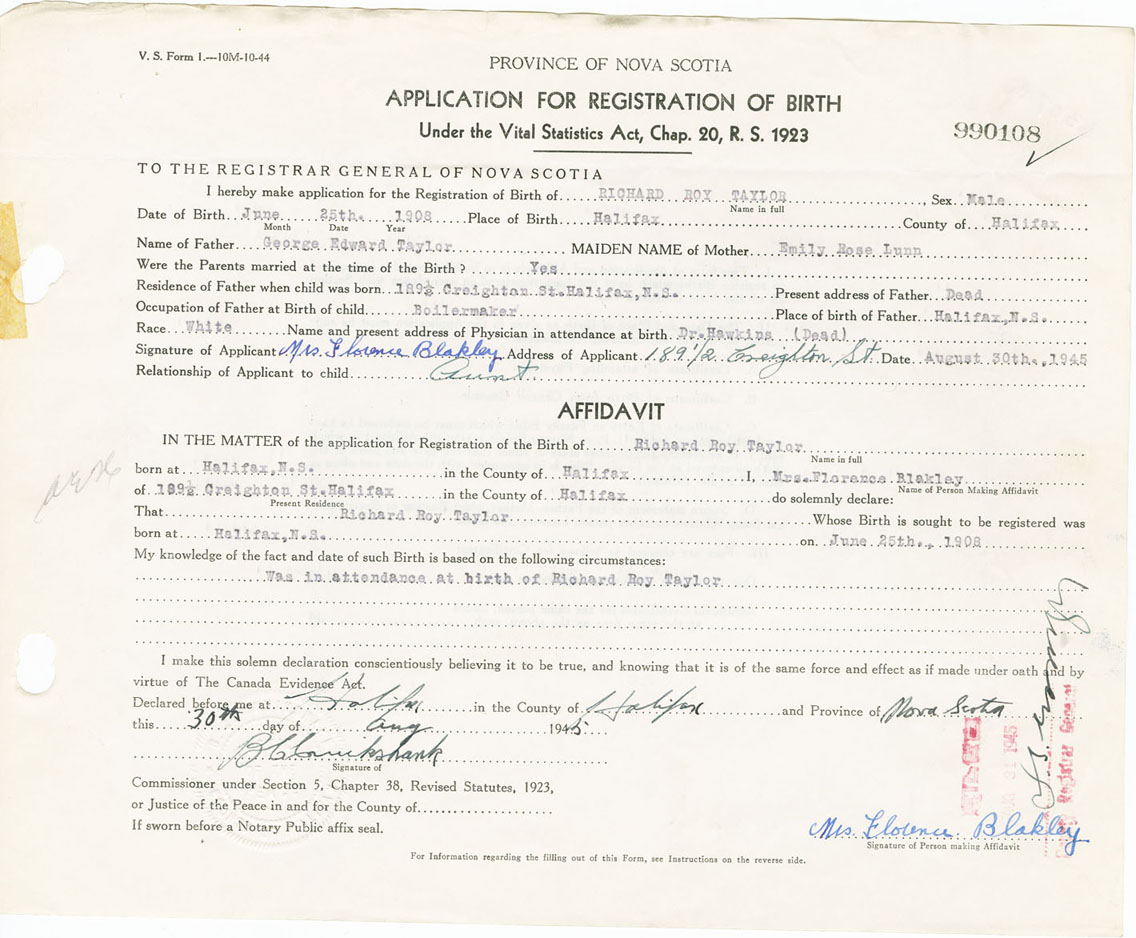 V. S. Form 1.—10M-10-44
PROVINCE OF NOVA SCOTIA
APPLICATION FOR REGISTRATION OF BIRTH
Under the Vital Statistics Act, Chap. 20, R. S. 1923
990108
TO THE REGISTRAR GENERAL OF NOVA SCOTIA
I hereby make application for the Registration of Birth of RICHARD ROY TAYLOR, Sex Male
Name in full
Date of Birth June 25th. 1908 Place of Birth Halifax County of Halifax
Month Date Year
Name of Father George Edward Taylor MAIDEN NAME of Mother Emily Rose Lunn
Were the Parents married at the time of the Birth? Yes
Residence of Father when child was born 189½ Creighton St.Halifax,N.S. Present address of Father Dead
Occupation of Father at Birth of child Boilermaker Place of birth of Father Halifax,N.S.
Race White Name and present address of Physician in attendance at birth Dr.Hawkins (Dead)
Signature of Applicant Mrs. Florence Blakley Address of Applicant 189 1/2 Creighton St. Date August 30th.,1945
Relationship of Applicant to child Aunt.
AFFIDAVIT
IN THE MATTER of the application for Registration of the Birth of Richard Roy Taylor
Name in full
born at Halifax,N.S. in the County of Halifax I, Mrs.Florance Blakley
Name of Person Making Affidavit
of 189½ Creighton St.Halifax in the County of Halifax do solemnly declare:
Present Residence
That Richard Roy Taylor Whose Birth is sought to be registered was
born at Halifax,N.S. on June 25th., 1908
My knowledge of the fact and date of such Birth is based on the following circumstances:
Was in attendance at birth of Richard Roy Taylor
I make this solemn declaration conscientiously believing it to be true, and knowing that it is of the same force and effect as if made under oath and by
virtue of The Canada Evidence Act.
Declared before me at Halifax in the County of Halifax and Province of Nova Scotia
this 30th day of Aug 1945
Signature of
Commissioner under Section 5, Chapter 38, Revised Statutes, 1923,
or Justice of the Peace in and for the County of
If sworn before a Notary Public affix seal.
Mrs. Florence Blakley
Signature of Person making Affidavit
FILED
31 1945
Deputy Registrar General
For Information regarding the filling out of this Form, see Instructions on the reverse side.